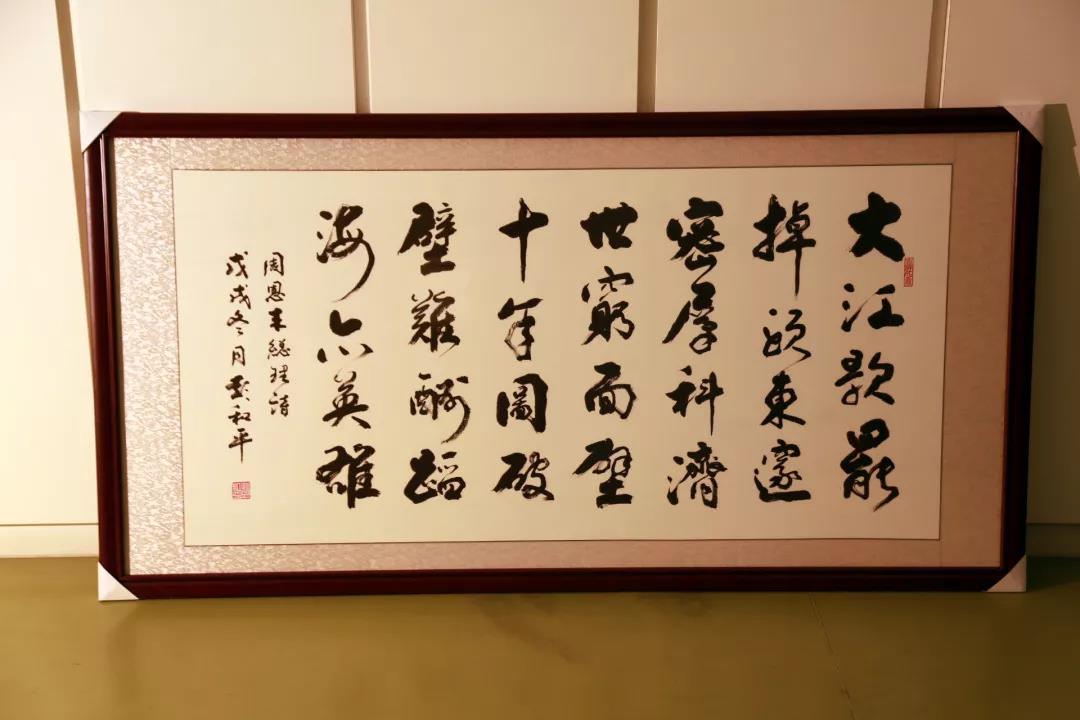 大江歌罷
掉頭東邃
密羣科濟
世窮面壁
十年圖破
壁難酬蹈
海亦英雄
周恩來總理詩
戊戌冬月彭和平